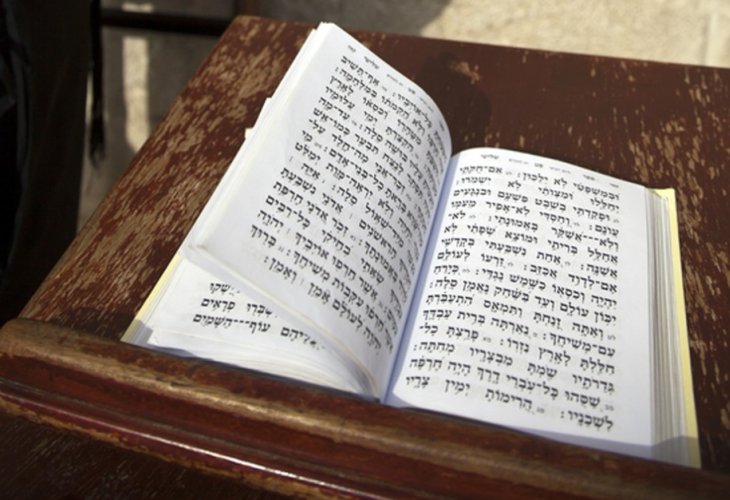 פט שלישי
וּבְמִשְׁפָּטַי לֹא יֵלֵכוּן: אִם־חֻקֹּתַי
יְחַלֵּלוּ וּמִצְוֹתַי לֹא יִשְׁמֹרוּ:
וּפָקַדְתִּי בְשֵׁבֶט פִּשְׁעָם וּבִנְגָעִים
עֲוֹנָם: וְחַסְדִּי לֹא־אָפִיר מֵעִמּוֹ
וְלֹא־אֲשַׁקֵּר בֶּאֱמוּנָתִי: לֹא־
אֲחַלֵּל בְּרִיתִי וּמוֹצָא שְׂפָתַי לֹא
אֲשַׁנֶּה: אַחַת נִשְׁבַּעְתִּי בְקָדְשִׁי
אִם־לְדָוִד אֲכַזֵּב: זַרְעוֹ לְעוֹלָם
יִהְיֶה וְכִסְאוֹ כַשֶּׁמֶשׁ נֶגְדִּי: כְּיָרֵחַ
יִכּוֹן עוֹלָם וְעֵד בַּשַּׁחַק נֶאֱמָן סֶלָה:
וְאַתָּה זָנַחְתָּ וַתִּמְאָס הִתְעַבַּרְתָּ
עִם־מְשִׁיחֶךָ: נֵאַרְתָּה בְּרִית עַבְדֶּךָ
חִלַּלְתָּ לָאָרֶץ נִזְרוֹ: פָּרַצְתָּ כָל־
גְּדֵרֹתָיו שַׂמְתָּ מִבְצָרָיו מְחִתָּה:
שַׁסֻּהוּ כָּל־עֹבְרֵי דָרֶךְ הָיָה חֶרְפָּה
לִשְׁכֵנָיו: הֲרִימוֹתָ יְמִין צָרָיו
פט שלישי
כָּל־אוֹיְבָיו: אַף־תָּשִׁיב
וְלֹא הֲקֵימֹתוֹ בַּמִּלְחָמָה:
וְכִסְאוֹ לָאָרֶץ
הִקְצַרְתָּ יְמֵי עֲלוּמָיו
בּוּשָׁה סֶלָה: עַד־מָה
לָנֶצַח תִּבְעַר כְּמוֹ־אֵשׁ
אֲנִי מֶה־חָלֶד עַל־
בָּרָאתָ כָל־בְּנֵי־אָדָם:
וְלֹא יִרְאֶה־מָּוֶת יְמַלֵּט
מִיַּד־שְׁאוֹל סֶלָה: אַיֵּה
הָרִאשֹׁנִים אֲדֹנָי נִשְׁבַּעְתָּ
בֶּאֱמוּנָתֶךָ: זְכֹר אֲדֹנָי חֶרְפַּת
שְׂאֵתִי בְחֵיקִי כָּל־רַבִּים
אֲשֶׁר חֵרְפוּ אוֹיְבֶיךָ יְהוָה
חֵרְפוּ עִקְּבוֹת מְשִׁיחֶךָ: בָּרוּךְ
יְהוָה לְעוֹלָם אָמֵן וְאָמֵן:
יִשְׁבְּרוּ פְרָאִים
עֲלֵיהֶם עוֹף־הַשָּׁמַיִם